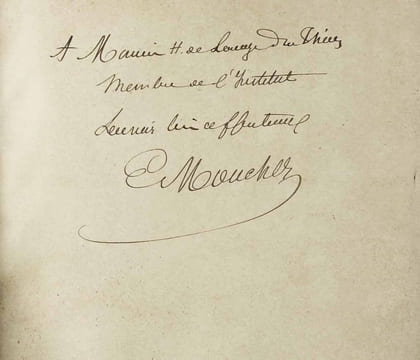 A Monsieur H. de Lacaze Duthiers
Membre de l'Institut
Souvenir bien affectueux
E Mouchez